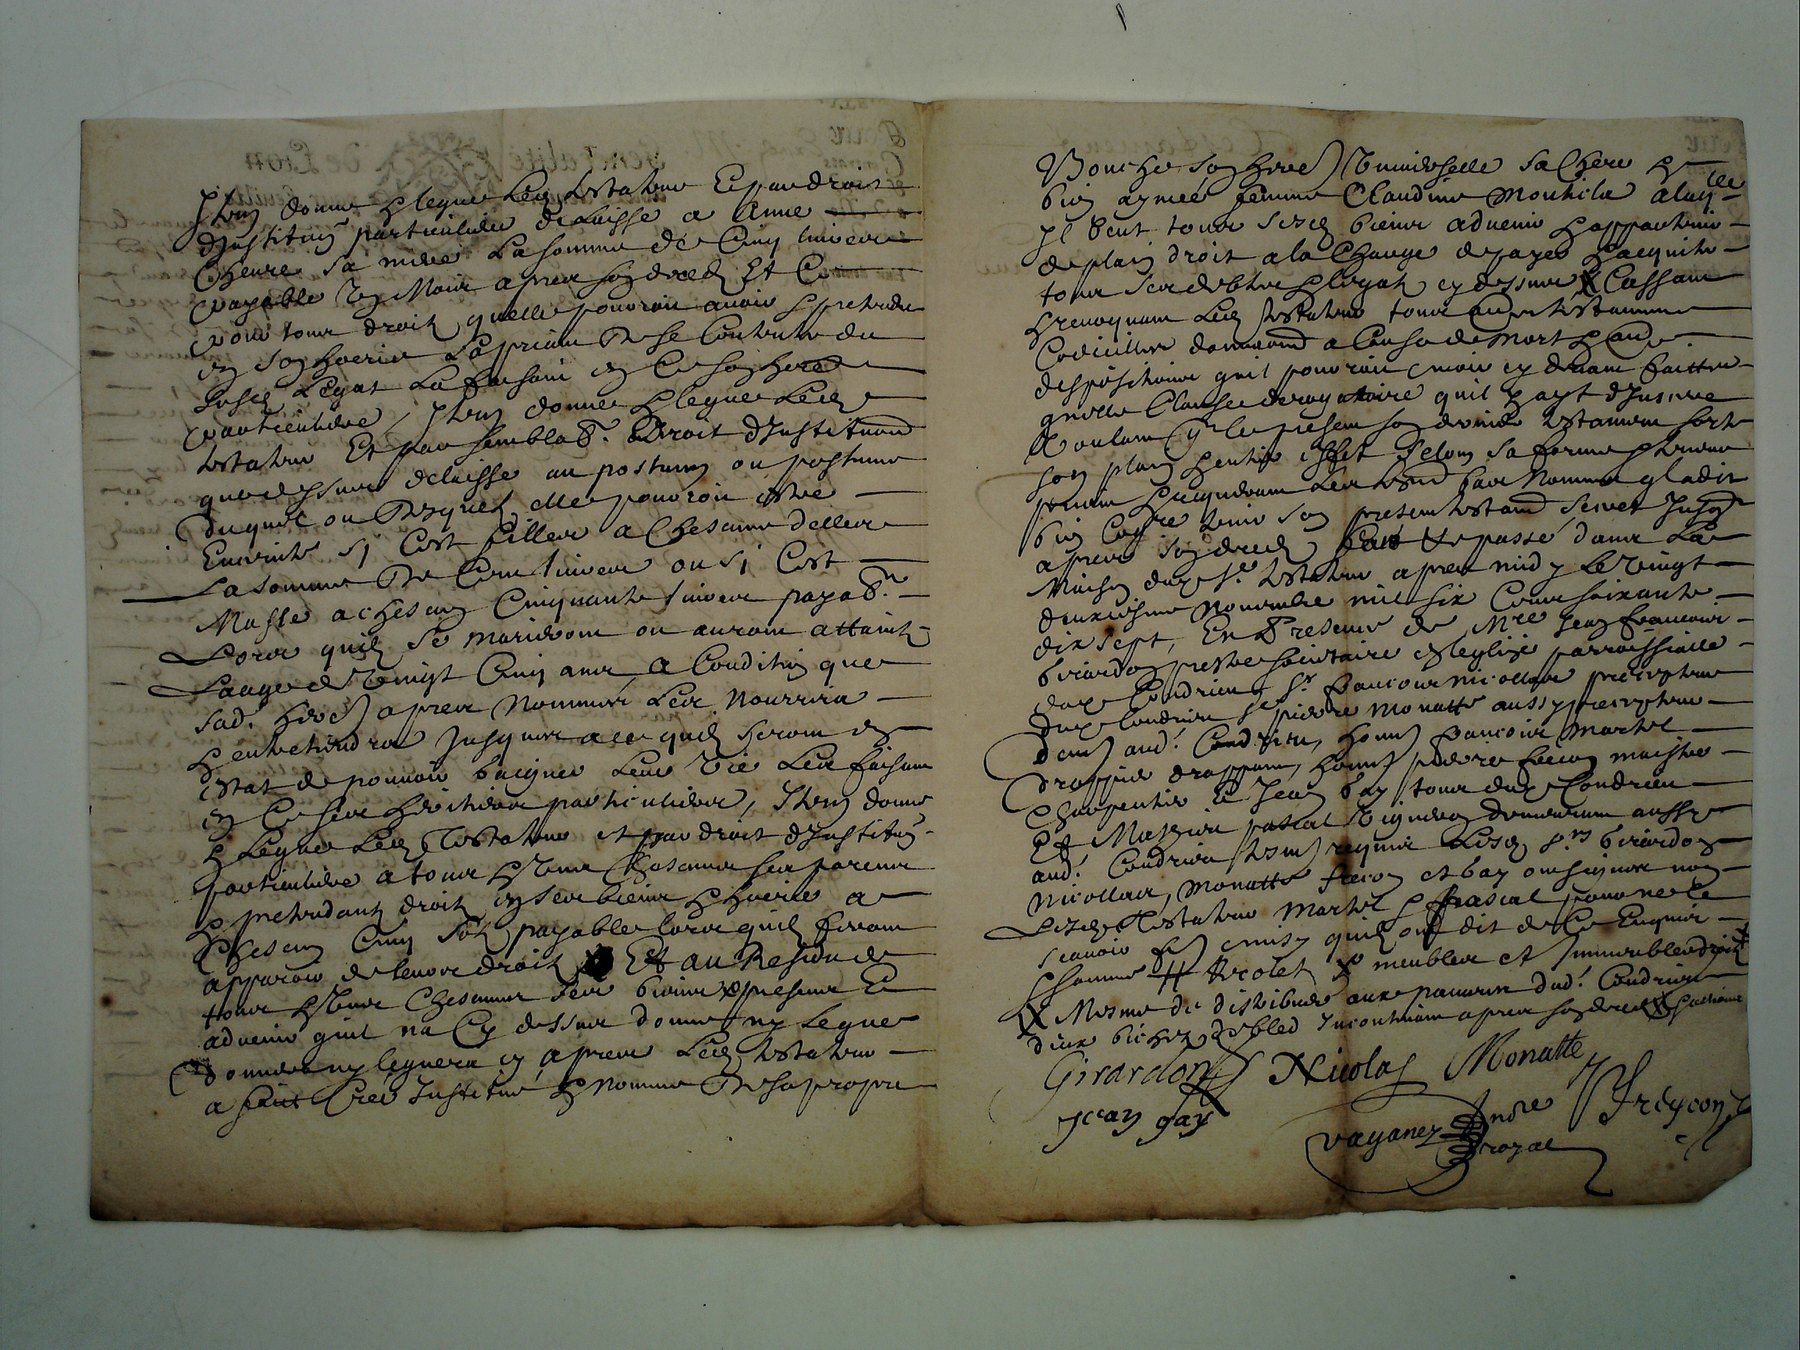 Item donne & legue Led testateur Et par droit
d'Institu͠on particuliere delaisse a Anne
Cheure sa niece La somme de Cinq livres
payable Un Mois apres son deced Et Ce
pour tous droitz quelle pourroit avoir & pretendre
en son hoerie La priant de se Contenter du
susd Legat La faisant en Ce son here
particuliere, Item donne & legue Led
testateur Et par semblab. droit d'Institu͠on
que dessus delaisse au postume ou postume
duquel ou desquelz elle pourroit estre
Enceinte si C'est filles a Chescune d'elles
La somme de Cent livres ou si C'est
Masle a chescung Cinquante livres payab.
Lors quilz se marieront ou auront attaint
L'aage de Vingt Cinq ans a Condition que
sad. here apres Nommée Les Nourrira
& entretiendra Jusques a ce quilz seront en
estat de pouvoir gaigner Leur Vie Les faisant
en Ce ses heritiers particuliers, Item donne
& Legue Led Testateur et par droit d'Institu͠on
particuliere a tous & Uns Chescuns ses parens
& pretendantz droit en ses biens & hoerie a
Chescung Cinq solz payable lors quilz feront
apparoir de leurs droitz Et au Residu de
tous & Uns Chescuns ses biens presens Et
advenir quil n'a Cy dessus donne ny legue
donnera ny leguera cy apres Led testateur
a fait Cree Institué & Nomme de sa propre
Bouche son here Universelle sa Chere &
bien aymée femme Claudine Mouhila a laqlle
Il Veut tous sesd biens advenir & appartenir
de plain droit a la Charge de payer & acquiter
tous ses debtes & legatz cy dessus Cassant
& revoquant Led testateur tous autres testamens
Codicilles dona͠on a Cause de Mort & autres
despositions quil pourroit avoir cy devant faittes
quelle Clause derogatoire quil y ayt d'Inserée
Voulant q le present son dernier testament sorte
son plain & entier effet selon sa forme & teneur
priant & requerant Les tesm par Nommés & ladit
bien Cogre tenir son present testam secret Jusq
apres son deced Fait & passé dans La
Maison dud Sr testateur apres midy le Vingt
deuxiesme Novembre mil six Cens soixante
dix sept, En Presence de Mre Jean francois
Girardon prestre societaire en l'eglize parrossialle
dud Condrieu, Sr francois Nicollas precepteur
dud Condrieu Sr pierre Monatte aussy precepteur
dem aud. Condrieu, honn francois Martel
drappier drappant, honn pierre frecon maistre
Charpentier & Jean Gay tous dud Condrieu
Et Mathieu pascal Vigneron demeurant aussy
aud. Condrieu tesm requis Lesd Srs Girardon
Nicollas, Monatte frecon et Gay ont signé non
Led Testateur Martel & pascal pour ne le
scavoir faire quilz ont dit de Ce Enquis
& sommés # Meubles et Immeubles droitz
X Mesme de distribuer aux pauvres dud. Condrieu
deux bichetz de bled Incontinant apres son deced
Girardon Nicolas Monatte
Jean Gay
Freycon
Vaganey Nore
royal